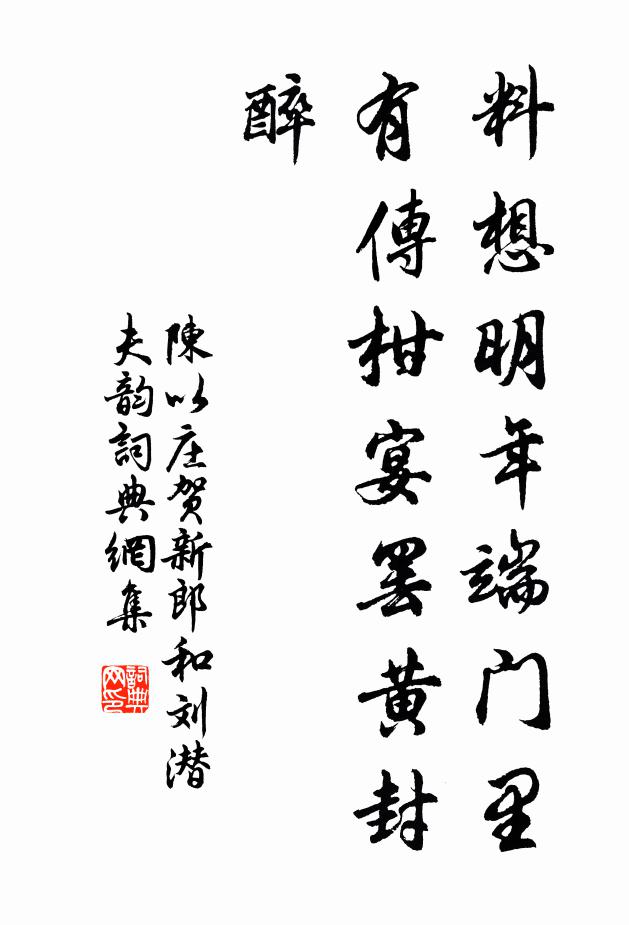 料想明年端门里
有傳柑宴罢黄封
醉
陳以庄贺新郎和刘潜
夫韵詞典網集
詞典网印